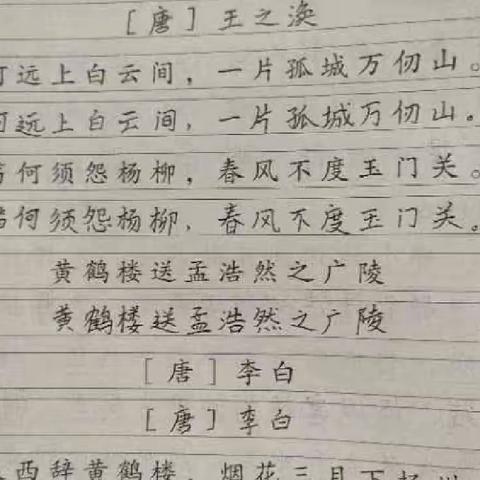 [唐]王之涣
河远上白云间，一片孤城万仞山。
河远上白云间，一片孤城万仞山。
何须怨杨柳，春风不度玉门关。
何须怨杨柳，春风不度玉门关。
黄鹤楼送孟浩然之广陵
黄鹤楼送孟浩然之广陵
[唐]李白
[唐]李白
西辞黄鹤楼，烟花三月下扬州